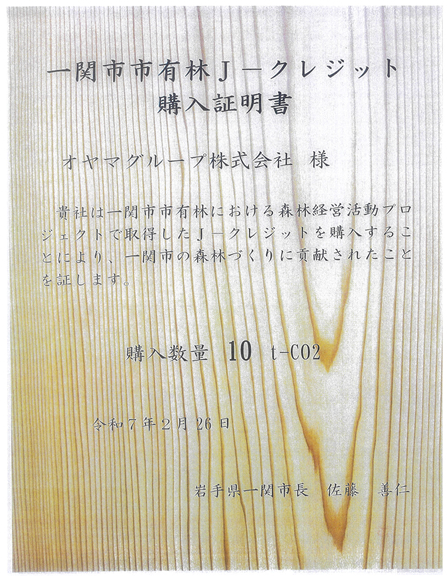 一関市市有林Ｊ－クレジット
購入証明書
オヤマグループ株式会社　様
貴社は一関市市有林における森林経営活動プロ
ジェクトで取得したＪ－クレジットを購入するこ
とにより、一関市の森林づくりに貢献されたこと
を証します。
購入数量　10　t-CO2
令和７年２月26日
岩手県一関市長　佐藤　善仁